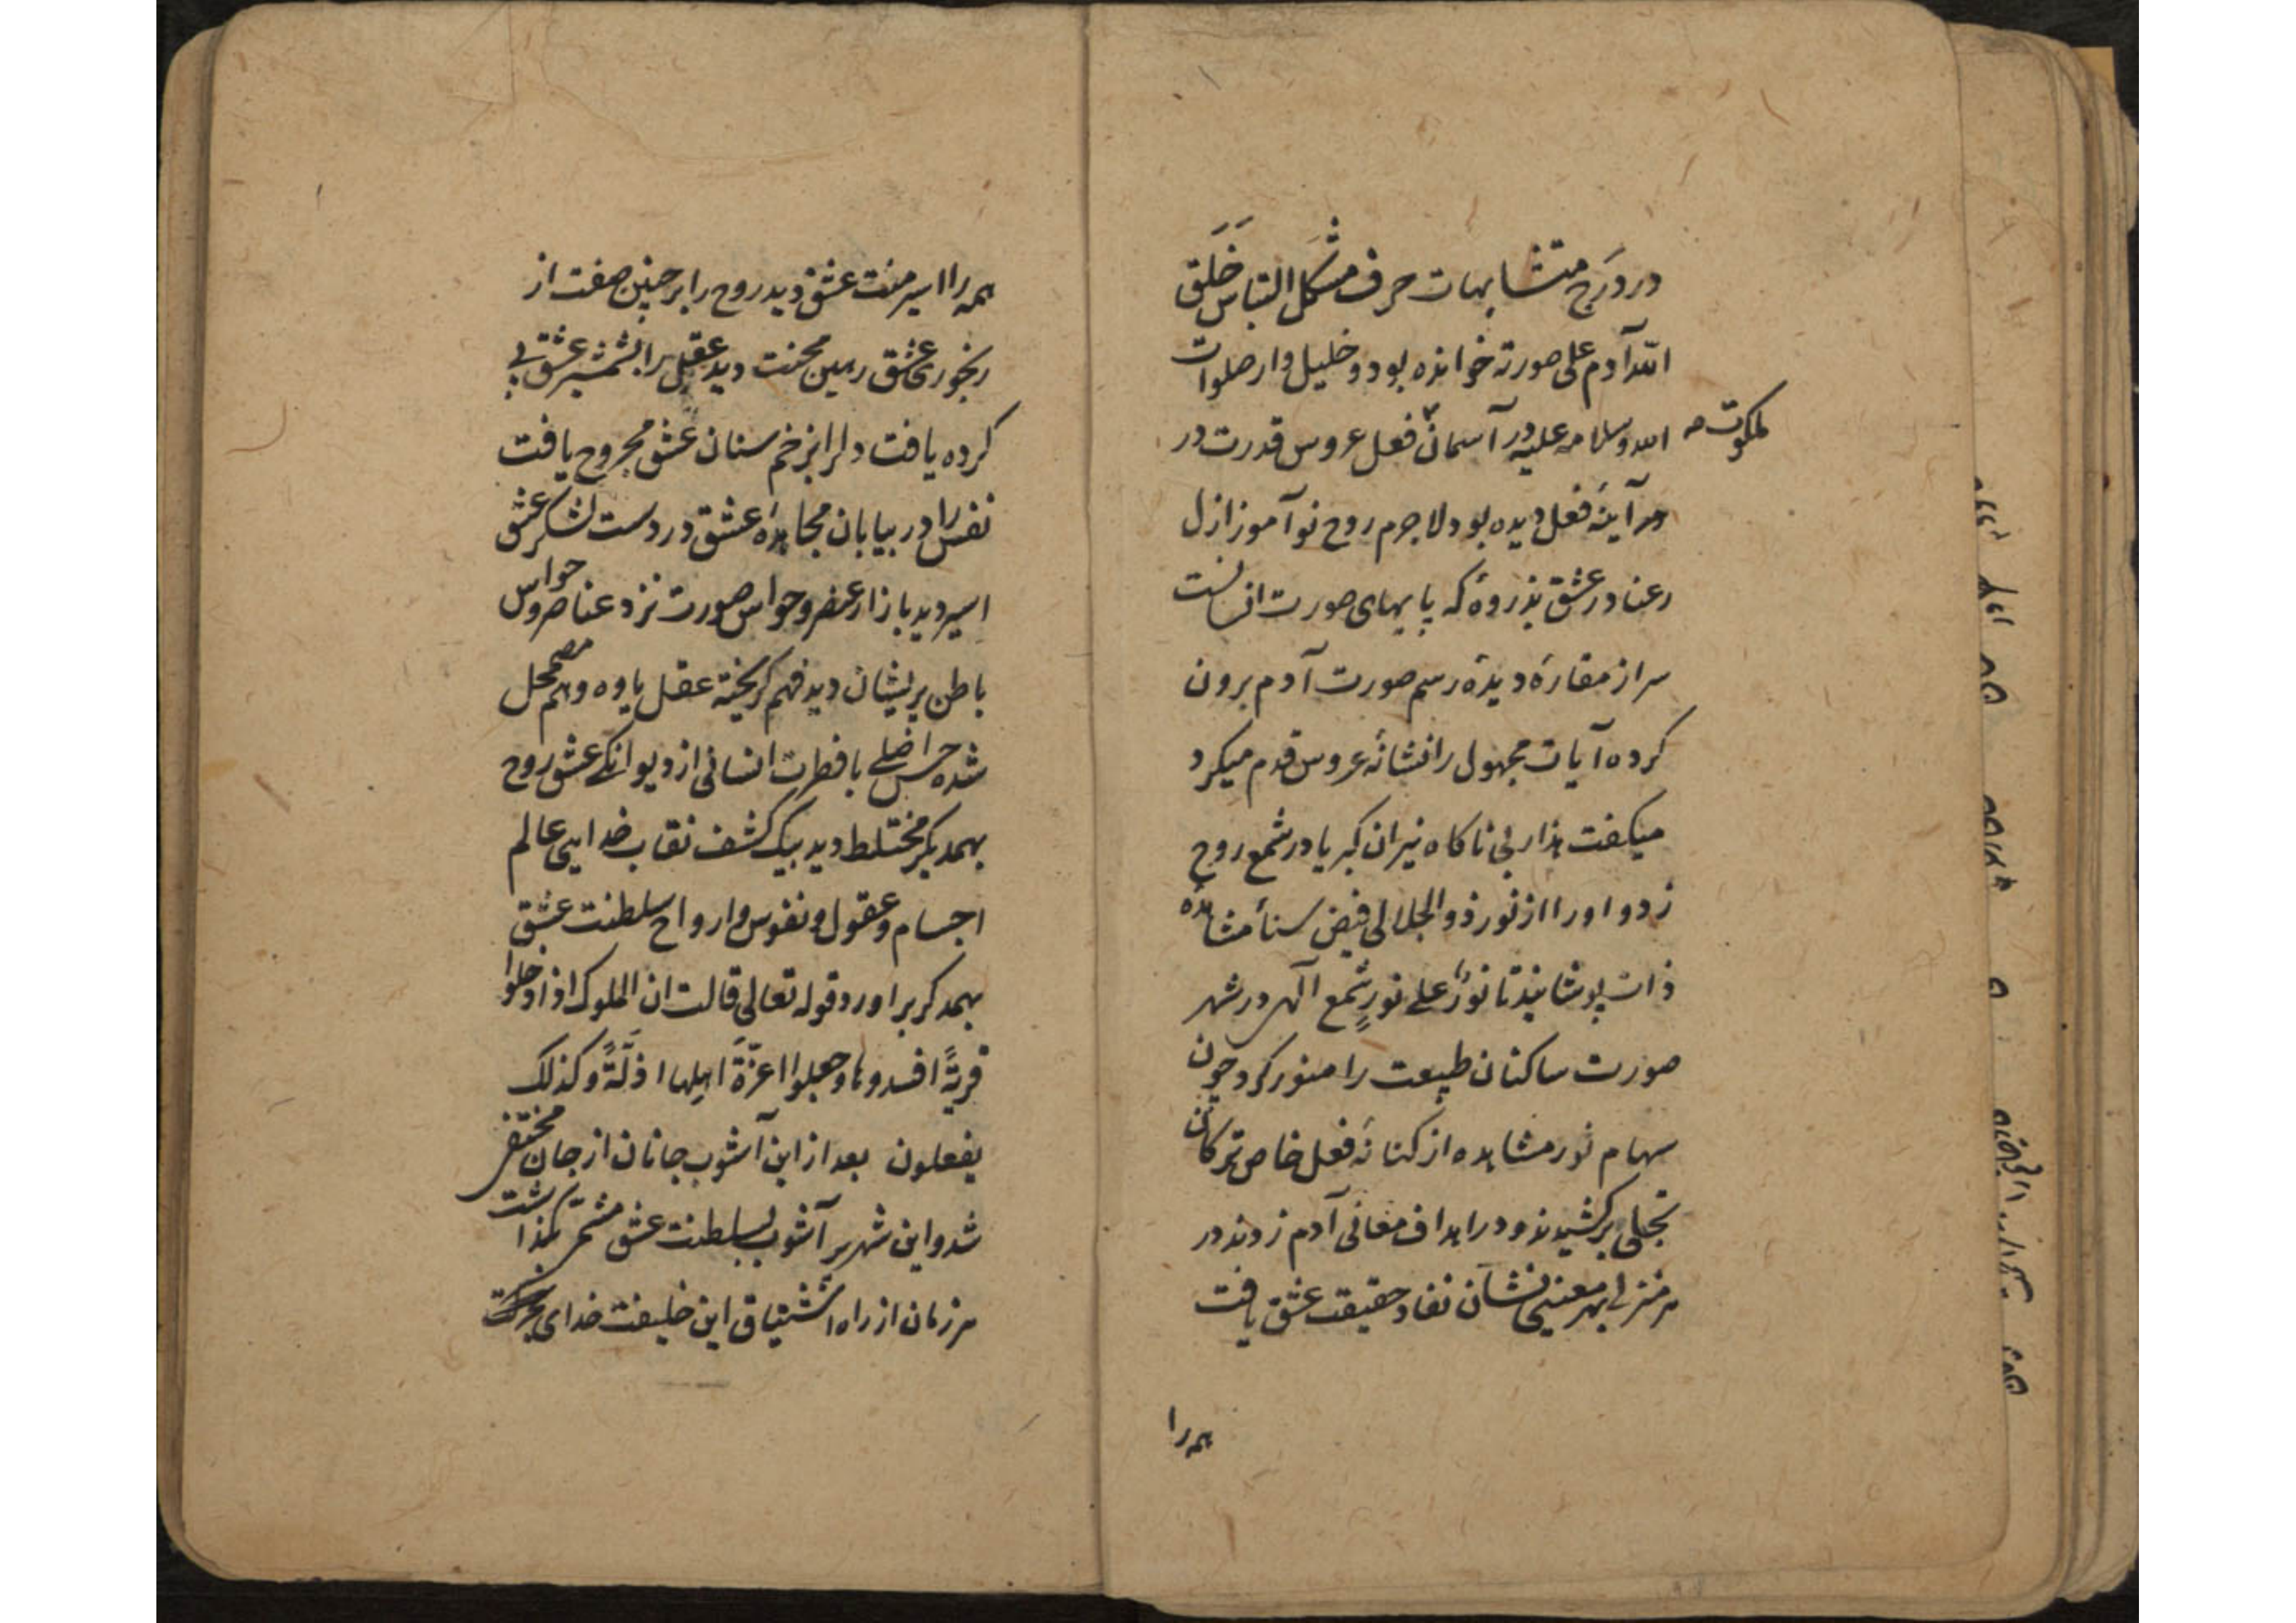 در درج متشابهات حرف مشکل التباس خَلَقَ
الله آدم علی صورته خوانده بود و خلیل وار صلوات
الله وسلامه علیه در آسمان فعل عروس قدرت در
ملکوت
هر آینهٔ فعل دیده بود لاجرم روح نوآموز ازل
رعنا در عشق بذروهٔ که پایهای صورت انسانیست
سر از مغارهٔ دیدهٔ رسم صورت آدم برون
کرده آیات مجهول را نشانهٔ عروس قدم میکرد
میگفت هذا ربی ناگاه نیران کبریا در شمع روح
زد و او را از نور ذوالجلالی فیض سناء مشاهده
ذات پوشانید تا نورٌ علی نورٍ شمع الٰهی در شهر
صورت ساکنان طبیعت را منور کرد چون
سهام نور مشاهده از کنانهٔ فعل خاص ترکان
تجلی برکشیدند و در اهداف معانی آدم زدند در
هر منزلی بهر معنیی نشان نفاد حقیقت عشق یافت
همه را
همه را اسیر منت عشق دید روح را بر چنین صفت از
رنجوری عشق رهین محنت دید عقل را بشمشیر عشق پی
کرده یافت دل را بزخم سنان عشق مجروح یافت
نفس را در بیابان مجاهدهٔ عشق در دست لشکر عشق
اسیر دید بازار عنصر و حواس صورت نزد عناصر و حواس
باطن پریشان دید فهم گریخته عقل یاوه وهم مضمحل
شده حس اصلی با فطرت انسانی از دیوانگی عشق روح
بهمدیگر مختلط دید بیک کشف نقاب خدایی عالم
اجسام و عقول و نفوس و ارواح سلطنت عشق
بهمدگر براورد قوله تعالی قالت ان الملوک اذا دخلوا
قریةً افسدوها وجعلوا اعزّةَ اهلها اذلّةً وکذلک
یفعلون بعد از این آشوب جانان از جان مختفی
شد و این شهر پر آشوب بسلطنت عشق مشمر بگذاشت
هر زمان از راه اشتیاق این خلیفت خدای